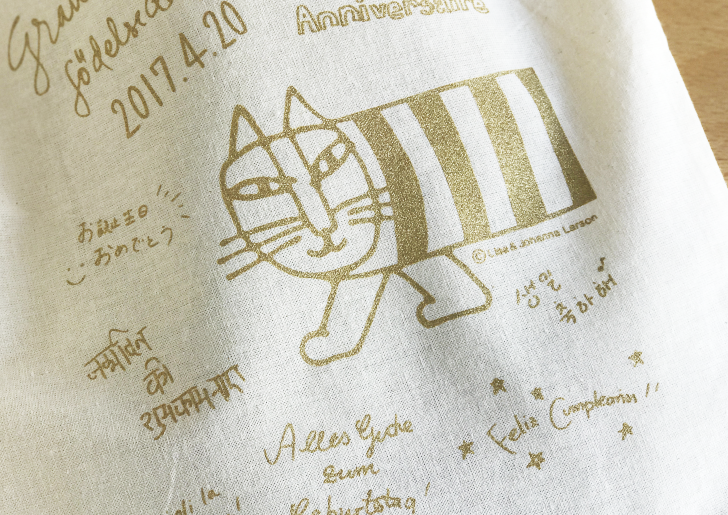 födelsed
2017.4.20
Anniversaire
お誕生日
おめでとう
© Lisa & Johanna Larson
생일
축하해
जन्मदिन
की
शुभकामनाएँ
Alles Gute
zum
Geburtstag!
Feliz Cumpleaños!!